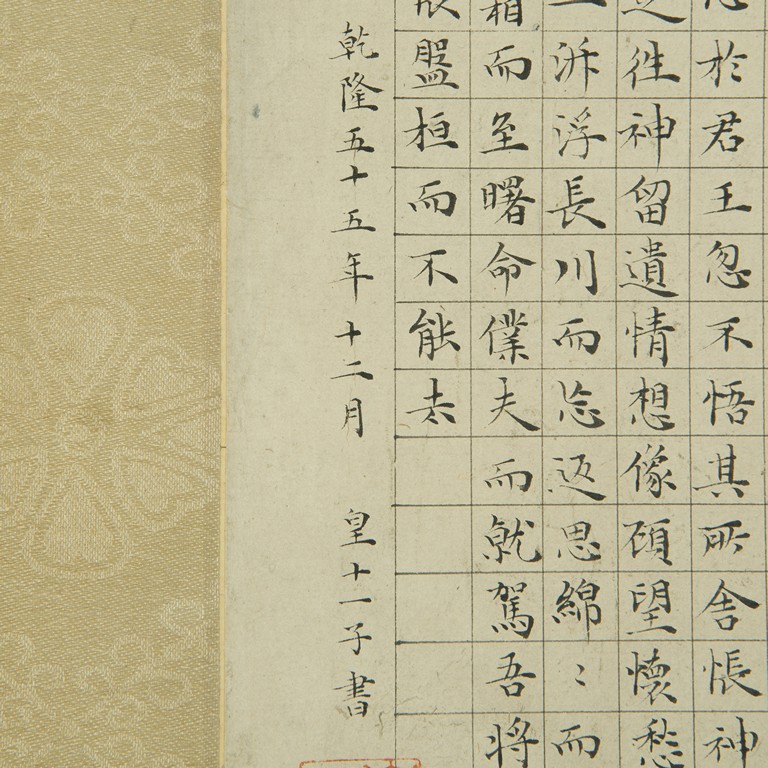 於君王忽不悟其所舍悵神
之往神留遺情想像顧望懷愁
泝浮長川而忘返思綿〻而
霜而至曙命僕夫而就駕吾將
盤桓而不能去
乾隆五十五年十二月 皇十一子書